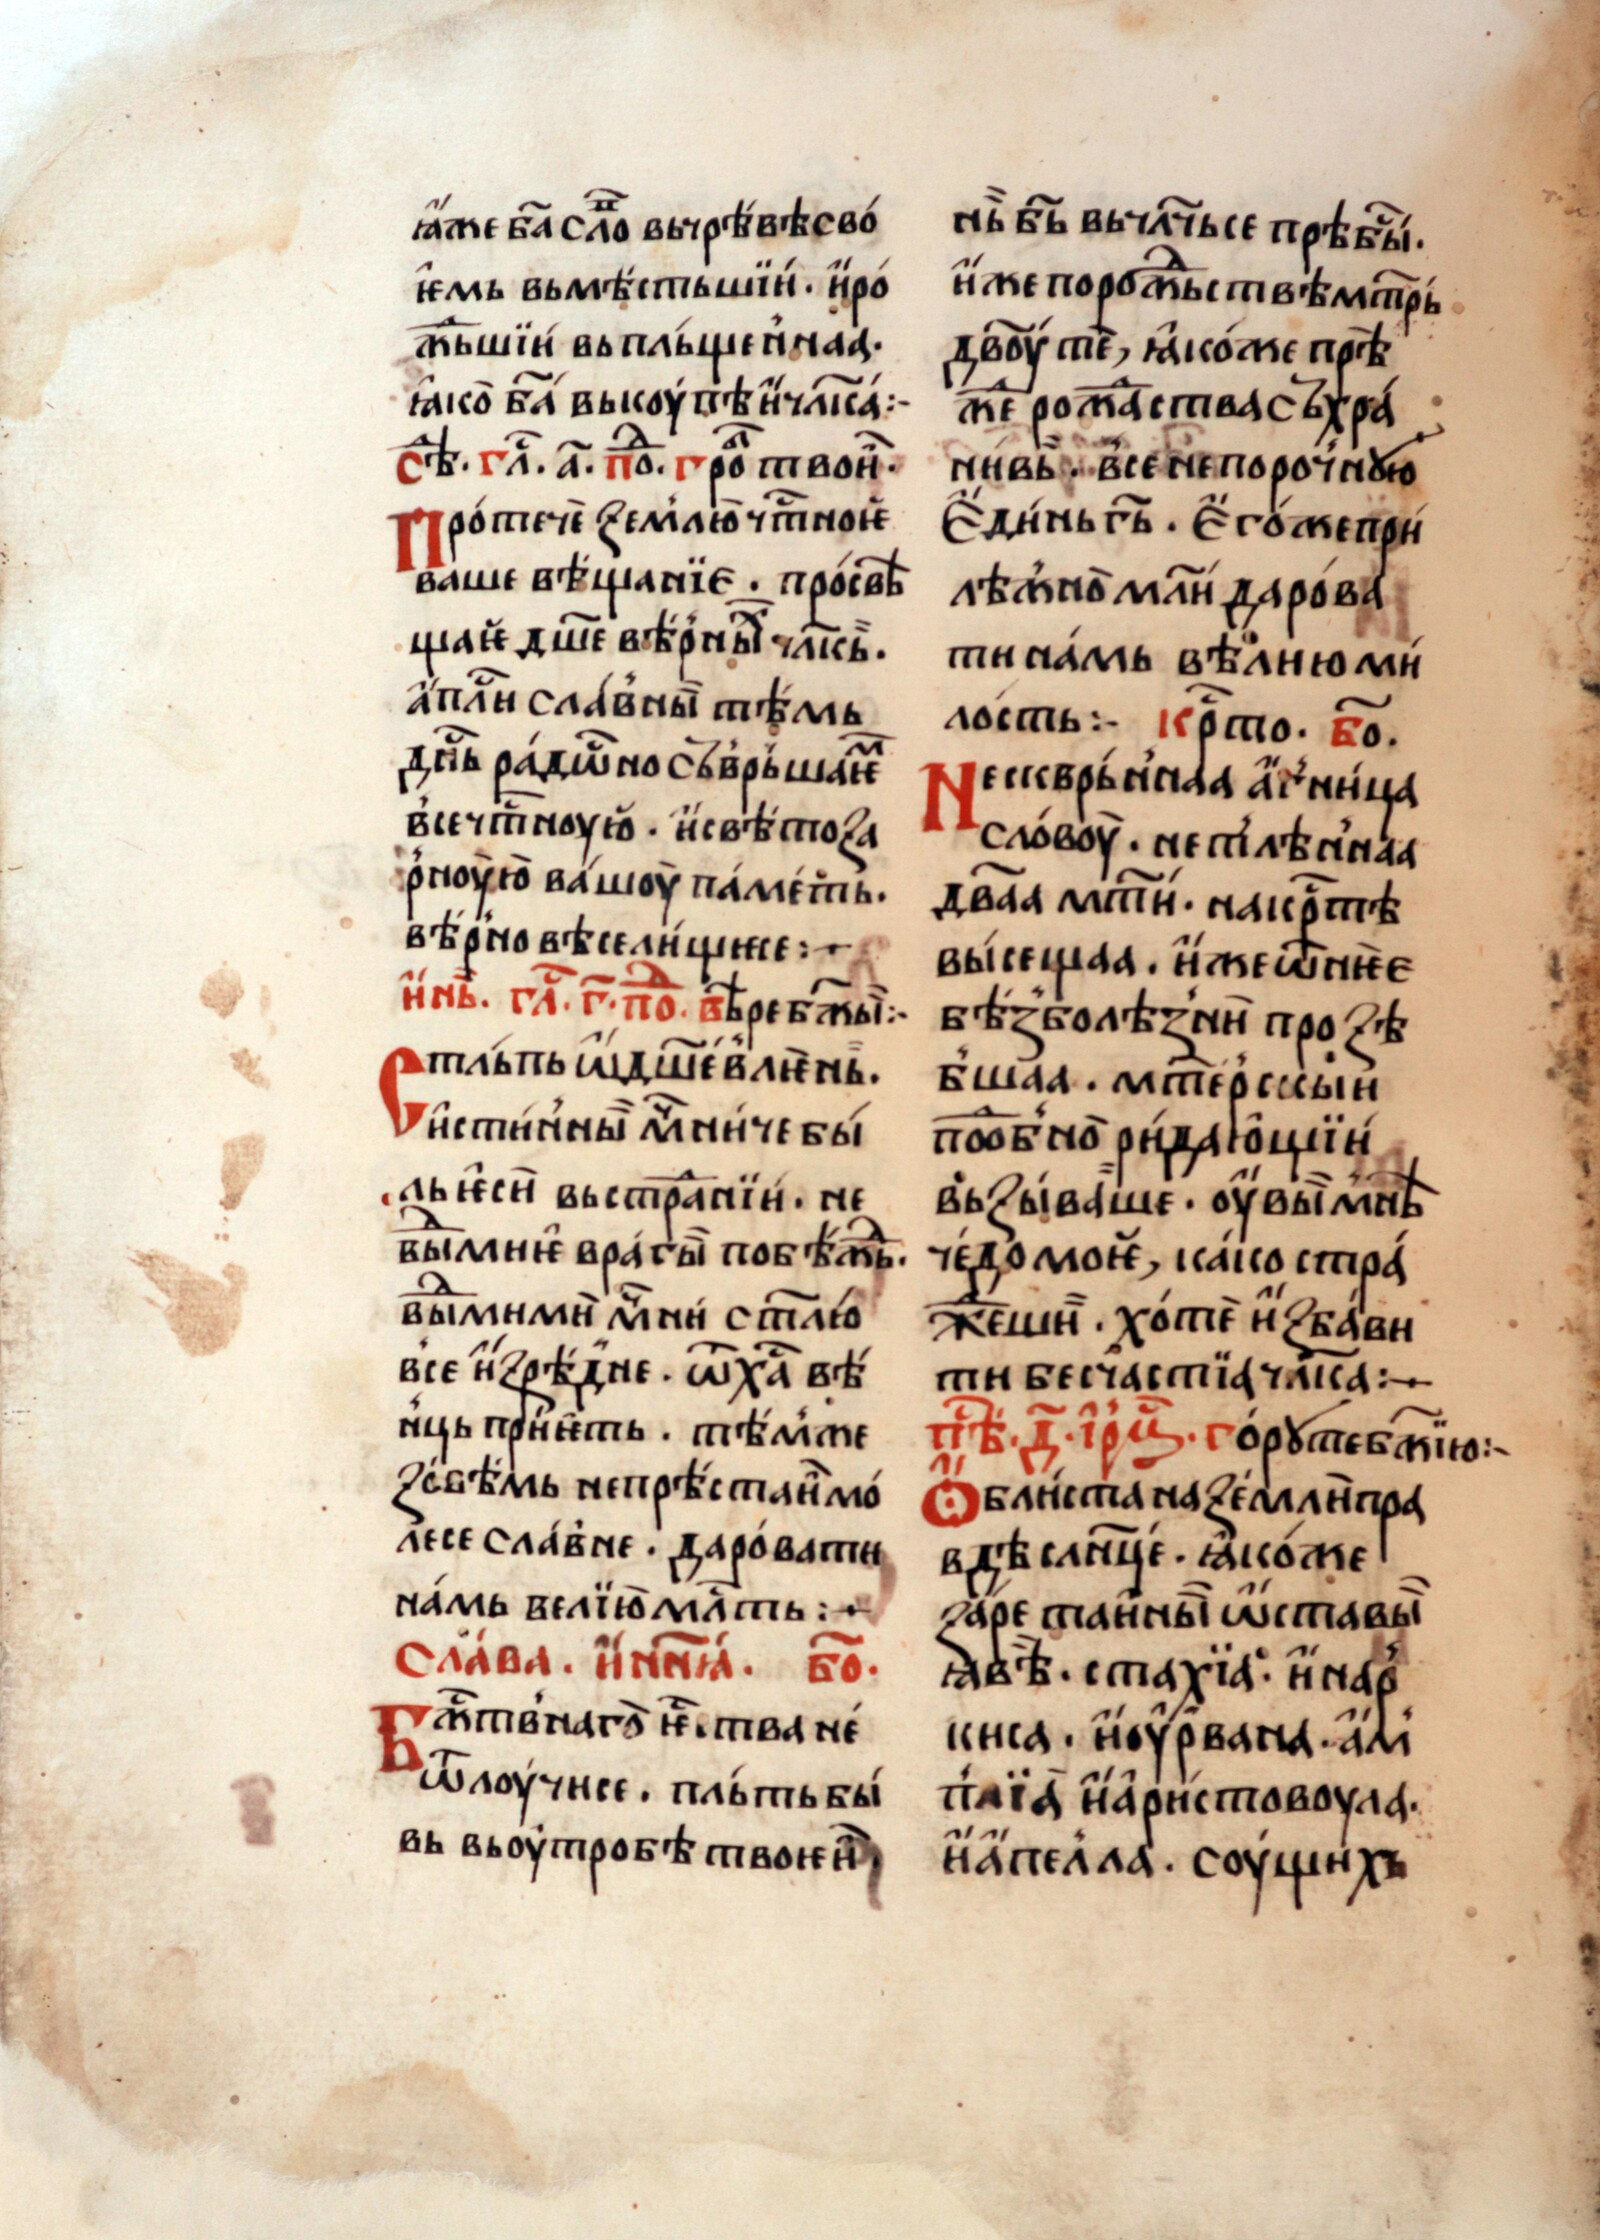 ꙗ҆́же б҃а сло҃ вьчрѣ́вѣ сво́
ѥ҆мь вьмѣ́стьшїи́. и҆̀ро́
жⷣьшїи́ вьпль́щеннаа.
ꙗ҆ко̀ б҃а́ вькоу́пѣ и҆ чл҃ка́:-
сѣⷣ. гл҃. а҃. поⷣ. гроⷠ твои҆̀.
Про́течѐ землю̀ чтⷭ҇ноѥ҆
ваше вѣ́щанїе. про́свѣ
щаѥ҆ дш҃е вѣ́рныⷯ чл҃кь̀.
а҆́пⷭ҇лы сла́вны̀ тѣ́мь
дн҃ь ра́дѡⷭ҇но съ́врь́шаѥⷨ
все чтⷭ҇ноую̀. и҆ свѣ́тоза
рноу́ю̀ ва́шоу̀ па́ме́ть.
вѣ́рно вѣселѝщиисе:-
и҆ нь̀. гл҃. г҃. поⷣ. вь́ре бжⷭ҇тьвы̀:-
Стль́пь ѡ҆́дш҃е́влѥ҆нь̀.
и҆стѝнны̀ мⷱ҇ни́че бы́
ль ѥ҆сѝ вьстра̀нїи́. не
ви́димиѥ҆ враⷢ҇гы̀ побѣ́жⷣь.
ви́димимѝ мⷱ҇ни́ст҃лю́
все и҆зрѣ́дне. ѿ х҃а вѣ́
нць при́ѥ҆ть. тѣ́мже
зо́вѣ́мь непрѣ́стаѝ мо́
лесе сла́вне. даро́вати
на́мь велїю̀ млⷭ҇ть:-
Сла́ва. и҆́ нн҃ꙗ́. бⷪ҇.
Бжⷭ҇твнаго̀ ѥⷭ҇.тва не́
ѿлоу́чисе. пль́ть бы́
вь вьоу́тробѣ твоѥи̇̀
нѣ̀ б҃ь вьчл҃чьсе прѣ́бы́.
и҆́же порожⷣьствѣ мт҃рь́
двⷪ҇у́ тѐ, ꙗ҆ко́же прѣⷤ
же рожⷣаства съ́хра́
нѝвь̀. все непоро́чную
Е҆дѝнь г҃ь. Е҆го́же при
лѣ́жно̀ мл҃и́ даро́ва
ти на́мь вѣ́лию ми́
ло́сть:- крⷭ҇то. бⷪ҇.
Нескврь́ннаа а҆́г҆ни́ца
сло́воу̀. нетлѣ́ннаа
дв҃аа мт҃и́. накрⷭ҇тѣ
вы́сещаа. и҆же ѿниѥ
бѣ́зболѣ́зни̇̀ прозѣ
бшаа. мт҃е́рскыи
пⷣо́обно̀ ри́даю́щїи́
вь́зы́ва́ше. оу҆вы̀ мнѣ̀
че́до моѥ̀, ка́ко стра́
жⷣеши̇̀. хо́тѐ и҆зба́ви
ти бесча́стїа чл҃ка:-
пѣⷭ҇. д҃. і҆рⷨ. го́ру те бжⷭ҇їю:-
Ѡ҆бли́ста на зе́мли̇̀ пра
вдѣ сл҃нце́. ꙗ҆ко́же
за́ре та́ины̀ ѡ҆́ставы̀
ꙗ҆вѣ̀. стахїа̀. и҆ нар
киса. и҆ оу҆рвана. а҆м
плїа́ и҆ а҆ри́стовоула.
и҆ а҆пелла. соу́щихъ